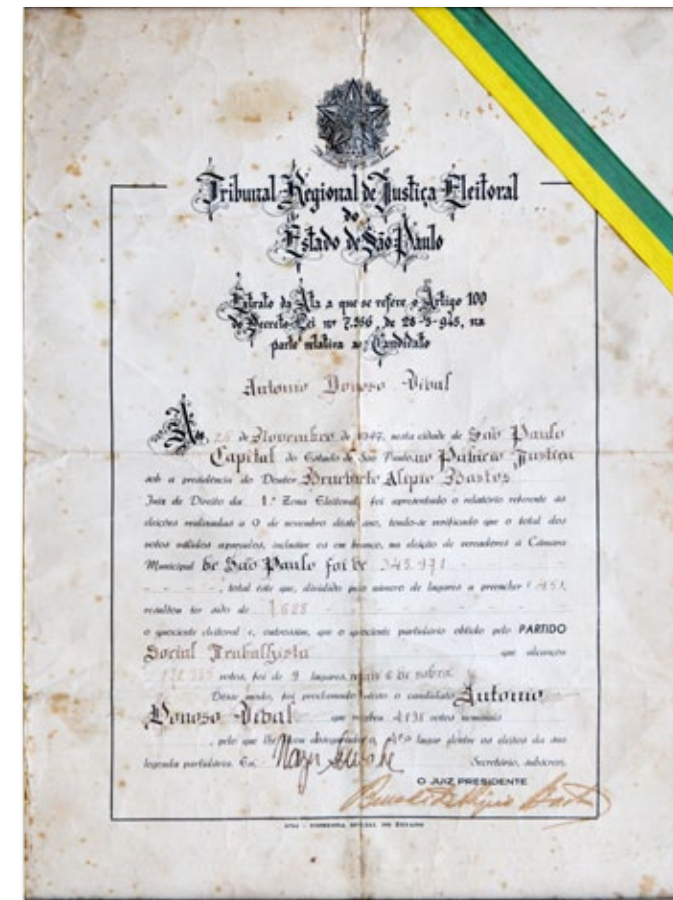 Tribunal Regional de Justiça Eleitoral
do
Estado de São Paulo
Extrato da Ata a que se refere o Artigo 100
do Decreto-Lei nº 7.586, de 28-5-945, na
parte relativa ao Candidato
Antonio Donoso Vidal
Aos 26 de Novembro de 1947, nesta cidade de São Paulo
Capital do Estado de São Paulo, no Palacio Justiça
sob a presidência do Doutor Alipio Bastos
Juiz de Direito da 1.ª Zona Eleitoral, foi apresentado o relatório referente às
eleições realizadas a 9 de novembro dêste ano, tendo-se verificado que o total dos
votos válidos apurados, inclusive os em branco, na eleição de vereadores à Câmara
Municipal de São Paulo foi de 343.971
, total êste que, dividido pelo número de lugares a preencher (45),
resultou ter sido de 7.628
o quociente eleitoral e, outrossim, que o quociente partidário obtido pelo PARTIDO
Social Trabalhista que alcançou
votos, foi de 9 lugares, mais 6 de sobra
Dêsse modo, foi proclamado eleito o candidato Antonio
Donoso Vidal que recebeu 4131 votos nominais
, pelo que lhe foi designado o 4º lugar dentre os eleitos da sua
legenda partidária. Eu, Secretário, subscrevi.
O JUIZ PRESIDENTE
IMPRENSA OFICIAL DO ESTADO